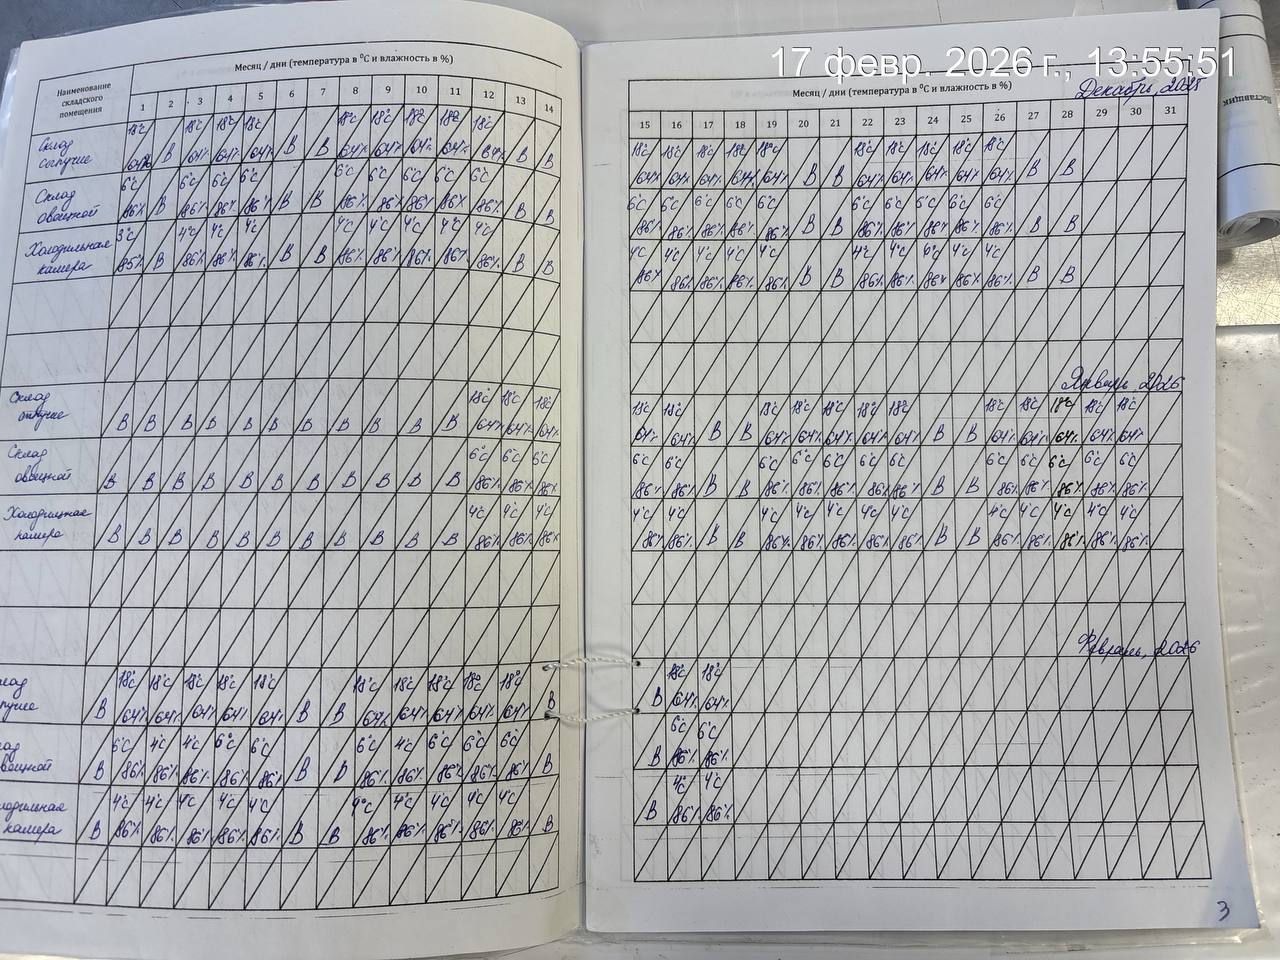 17 февр. 2026 г., 13:55:51
Месяц / дни (температура в °С и влажность в %)
Наименование складского помещения
1 2 3 4 5 6 7 8 9 10 11 12 13 14
Склад
18°С 18°С 18°С 18°С 18°С 18°С 18°С 18°С 18°С
64% В 64% 64% 64% В В 64% 64% 64% 64% 64% В В
Склад овощной
6°С 6°С 6°С 6°С 6°С 6°С 6°С 6°С 6°С
86% В 86% 86% 86% В В 86% 86% 86% 86% 86% В В
Холодильная камера
3°С 4°С 4°С 4°С 4°С 4°С 4°С 4°С 4°С
85% В 86% 86% 86% В В 86% 86% 86% 86% 86% В В
Склад
18°С 18°С 18°С
В В В В В В В В В В В 64% 64% 64%
Склад овощной
6°С 6°С 6°С
В В В В В В В В В В В 86% 86% 86%
Холодильная камера
4°С 4°С 4°С
В В В В В В В В В В В 86% 86% 86%
18°С 18°С 18°С 18°С 18°С 18°С 18°С 18°С 18°С 18°С
В 64% 64% 64% 64% 64% В В 64% 64% 64% 64% 64% В
6°С 4°С 4°С 6°С 6°С 6°С 4°С 6°С 6°С 6°С
В 86% 86% 86% 86% 86% В В 86% 86% 86% 86% 86% В
камера
4°С 4°С 4°С 4°С 4°С 4°С 4°С 4°С 4°С 4°С
В 86% 86% 86% 86% 86% В В 86% 86% 86% 86% 86% В
Месяц / дни (температура в °С и влажность в %)
Декабрь, 2025
15 16 17 18 19 20 21 22 23 24 25 26 27 28 29 30 31
18°С 18°С 18°С 18°С 18°С 18°С 18°С 18°С 18°С 18°С
64% 64% 64% 64% 64% В В 64% 64% 64% 64% 64% В В
6°С 6°С 6°С 6°С 6°С 6°С 6°С 6°С 6°С 6°С
86% 86% 86% 86% 86% В В 86% 86% 86% 86% 86% В В
4°С 4°С 4°С 4°С 4°С 4°С 4°С 4°С 4°С
86% 86% 86% 86% 86% В В 86% 86% 86% 86% 86% В В
Январь, 2026
18°С 18°С 18°С 18°С 18°С 18°С 18°С 18°С 18°С 18°С 18°С 18°С
64% 64% В В 64% 64% 64% 64% 64% В В 64% 64% 64% 64% 64%
6°С 6°С 6°С 6°С 6°С 6°С 6°С 6°С 6°С 6°С 6°С 6°С
86% 86% В В 86% 86% 86% 86% 86% В В 86% 86% 86% 86% 86%
4°С 4°С 4°С 4°С 4°С 4°С 4°С 4°С 4°С 4°С 4°С 4°С
86% 86% В В 86% 86% 86% 86% 86% В В 86% 86% 86% 86% 86%
Февраль, 2026
18°С 18°С
В 64% 64%
6°С 6°С
В 86% 86%
4°С 4°С
В 86% 86%
3
Поставщик